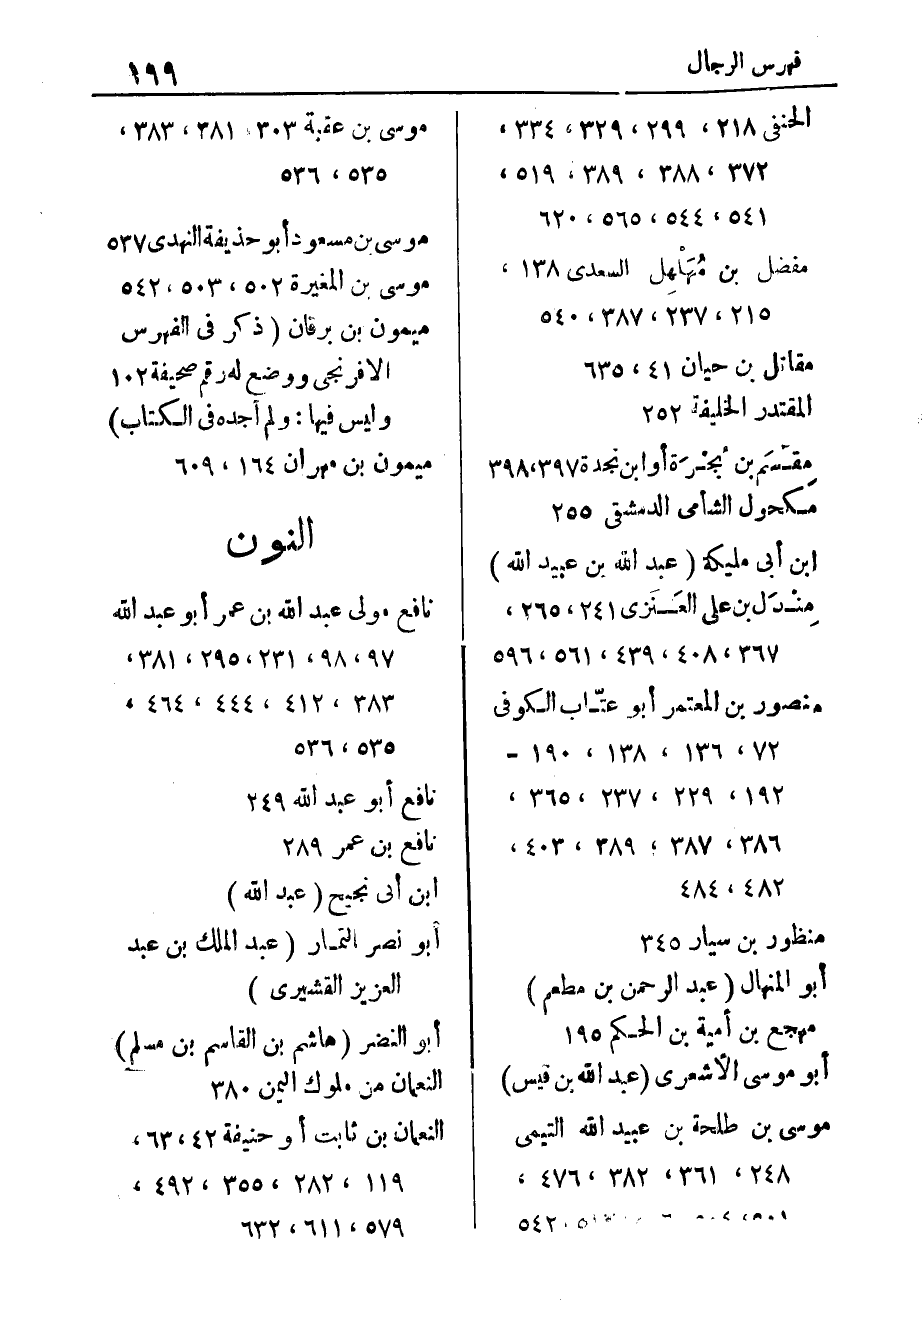 فهرس الرجال
١٩٩
الحنفى ٢١٨ ، ٢٩٩ ، ٣٢٩ ، ٣٣٤ ،
٣٧٢ ، ٣٨٨ ، ٣٨٩ ، ٥١٩ ،
٥٤١ ، ٥٤٤ ، ٥٦٥ ، ٦٢٠
مفضل بن مُهَلْهِل السعدى ١٣٨ ،
٢١٥ ، ٢٣٧ ، ٣٨٧ ، ٥٤٠
مقاتل بن حيان ٤١ ، ٦٣٥
المقتدر الخليفة ٢٥٢
مِقْسَم بن بُجْرَة أو ابن نجدة ٣٩٧ ، ٣٩٨
مكحول الشامى الدمشقى ٢٥٥
ابن أبى مليكة ( عبد الله بن عبيد الله )
مِنْدَل بن على العَنَزِى ٢٤١ ، ٢٦٥ ،
٣٦٧ ، ٤٠٨ ، ٤٣٩ ، ٥٦١ ، ٥٩٦
منصور بن المعتمر أبو عتَّاب الكوفى
٧٢ ، ١٣٦ ، ١٣٨ ، ١٩٠ -
١٩٢ ، ٢٢٩ ، ٢٣٧ ، ٣٦٥ ،
٣٨٦ ، ٣٨٧ ، ٣٨٩ ، ٤٠٣ ،
٤٨٢ ، ٤٨٤
منظور بن سيار ٣٤٥
أبو المنهال ( عبد الرحمن بن مطعم )
مهجع بن أمية بن الحكم ١٩٥
أبو موسى الأشعرى ( عبد الله بن قيس )
موسى بن طلحة بن عبيد الله التيمى
٢٤٨ ، ٣٦١ ، ٣٨٢ ، ٤٧٦ ،
٥٤٢
موسى بن عقبة ٣٠٣ ، ٣٨١ ، ٣٨٣ ،
٥٣٥ ، ٥٣٦
موسى بن مسعود أبو حذيفة النهدى ٥٣٧
موسى بن المغيرة ٥٠٢ ، ٥٠٣ ، ٥٤٢
ميمون بن برقان ( ذكر فى الفهرس
الافرنجى ووضع له رقم صحيفة ١٠٢
وليس فيها : ولم أجده فى الكتاب )
ميمون بن مهران ١٦٤ ، ٦٠٩
النون
نافع مولى عبد الله بن عمر أبو عبد الله
٩٧ ، ٩٨ ، ٢٣١ ، ٢٩٥ ، ٣٨١ ،
٣٨٣ ، ٤١٢ ، ٤٤٤ ، ٤٦٤ ،
٥٣٥ ، ٥٣٦
نافع أبو عبد الله ٢٤٩
نافع بن عمر ٢٨٩
ابن أبى نجيح ( عبد الله )
أبو نصر التمار ( عبد الملك بن عبد
العزيز القشيرى )
أبو النضر ( هاشم بن القاسم بن مسلم )
النعمان من ملوك اليمن ٣٨٠
النعمان بن ثابت أبو حنيفة ٤٢ ، ٦٣ ،
١١٩ ، ٢٨٢ ، ٣٥٥ ، ٤٩٢ ،
٥٧٩ ، ٦١١ ، ٦٣٢